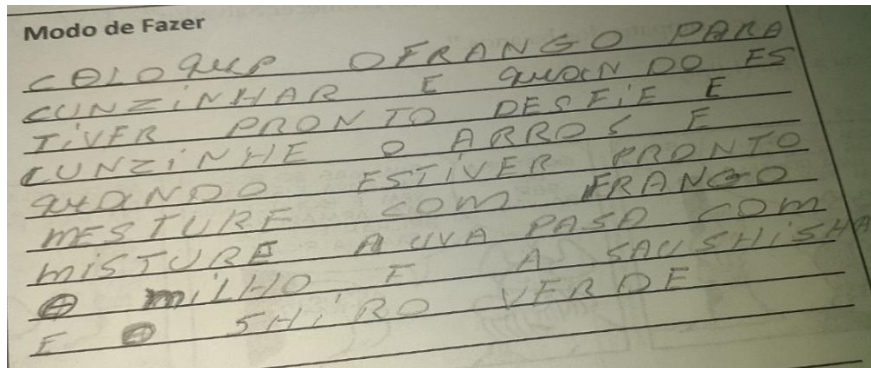 Modo de Fazer
COLOQUE O FRANGO PARA
CUNZINHAR E QUANDO ES
TIVER PRONTO DESFIE E
CUNZINHE O ARROS E
QUANDO ESTIVER PRONTO
MESTURE COM FRANGO
MISTURE A UVA PASA COM
O MILHO E A SAUSHISHA
E O SHIRO VERDE